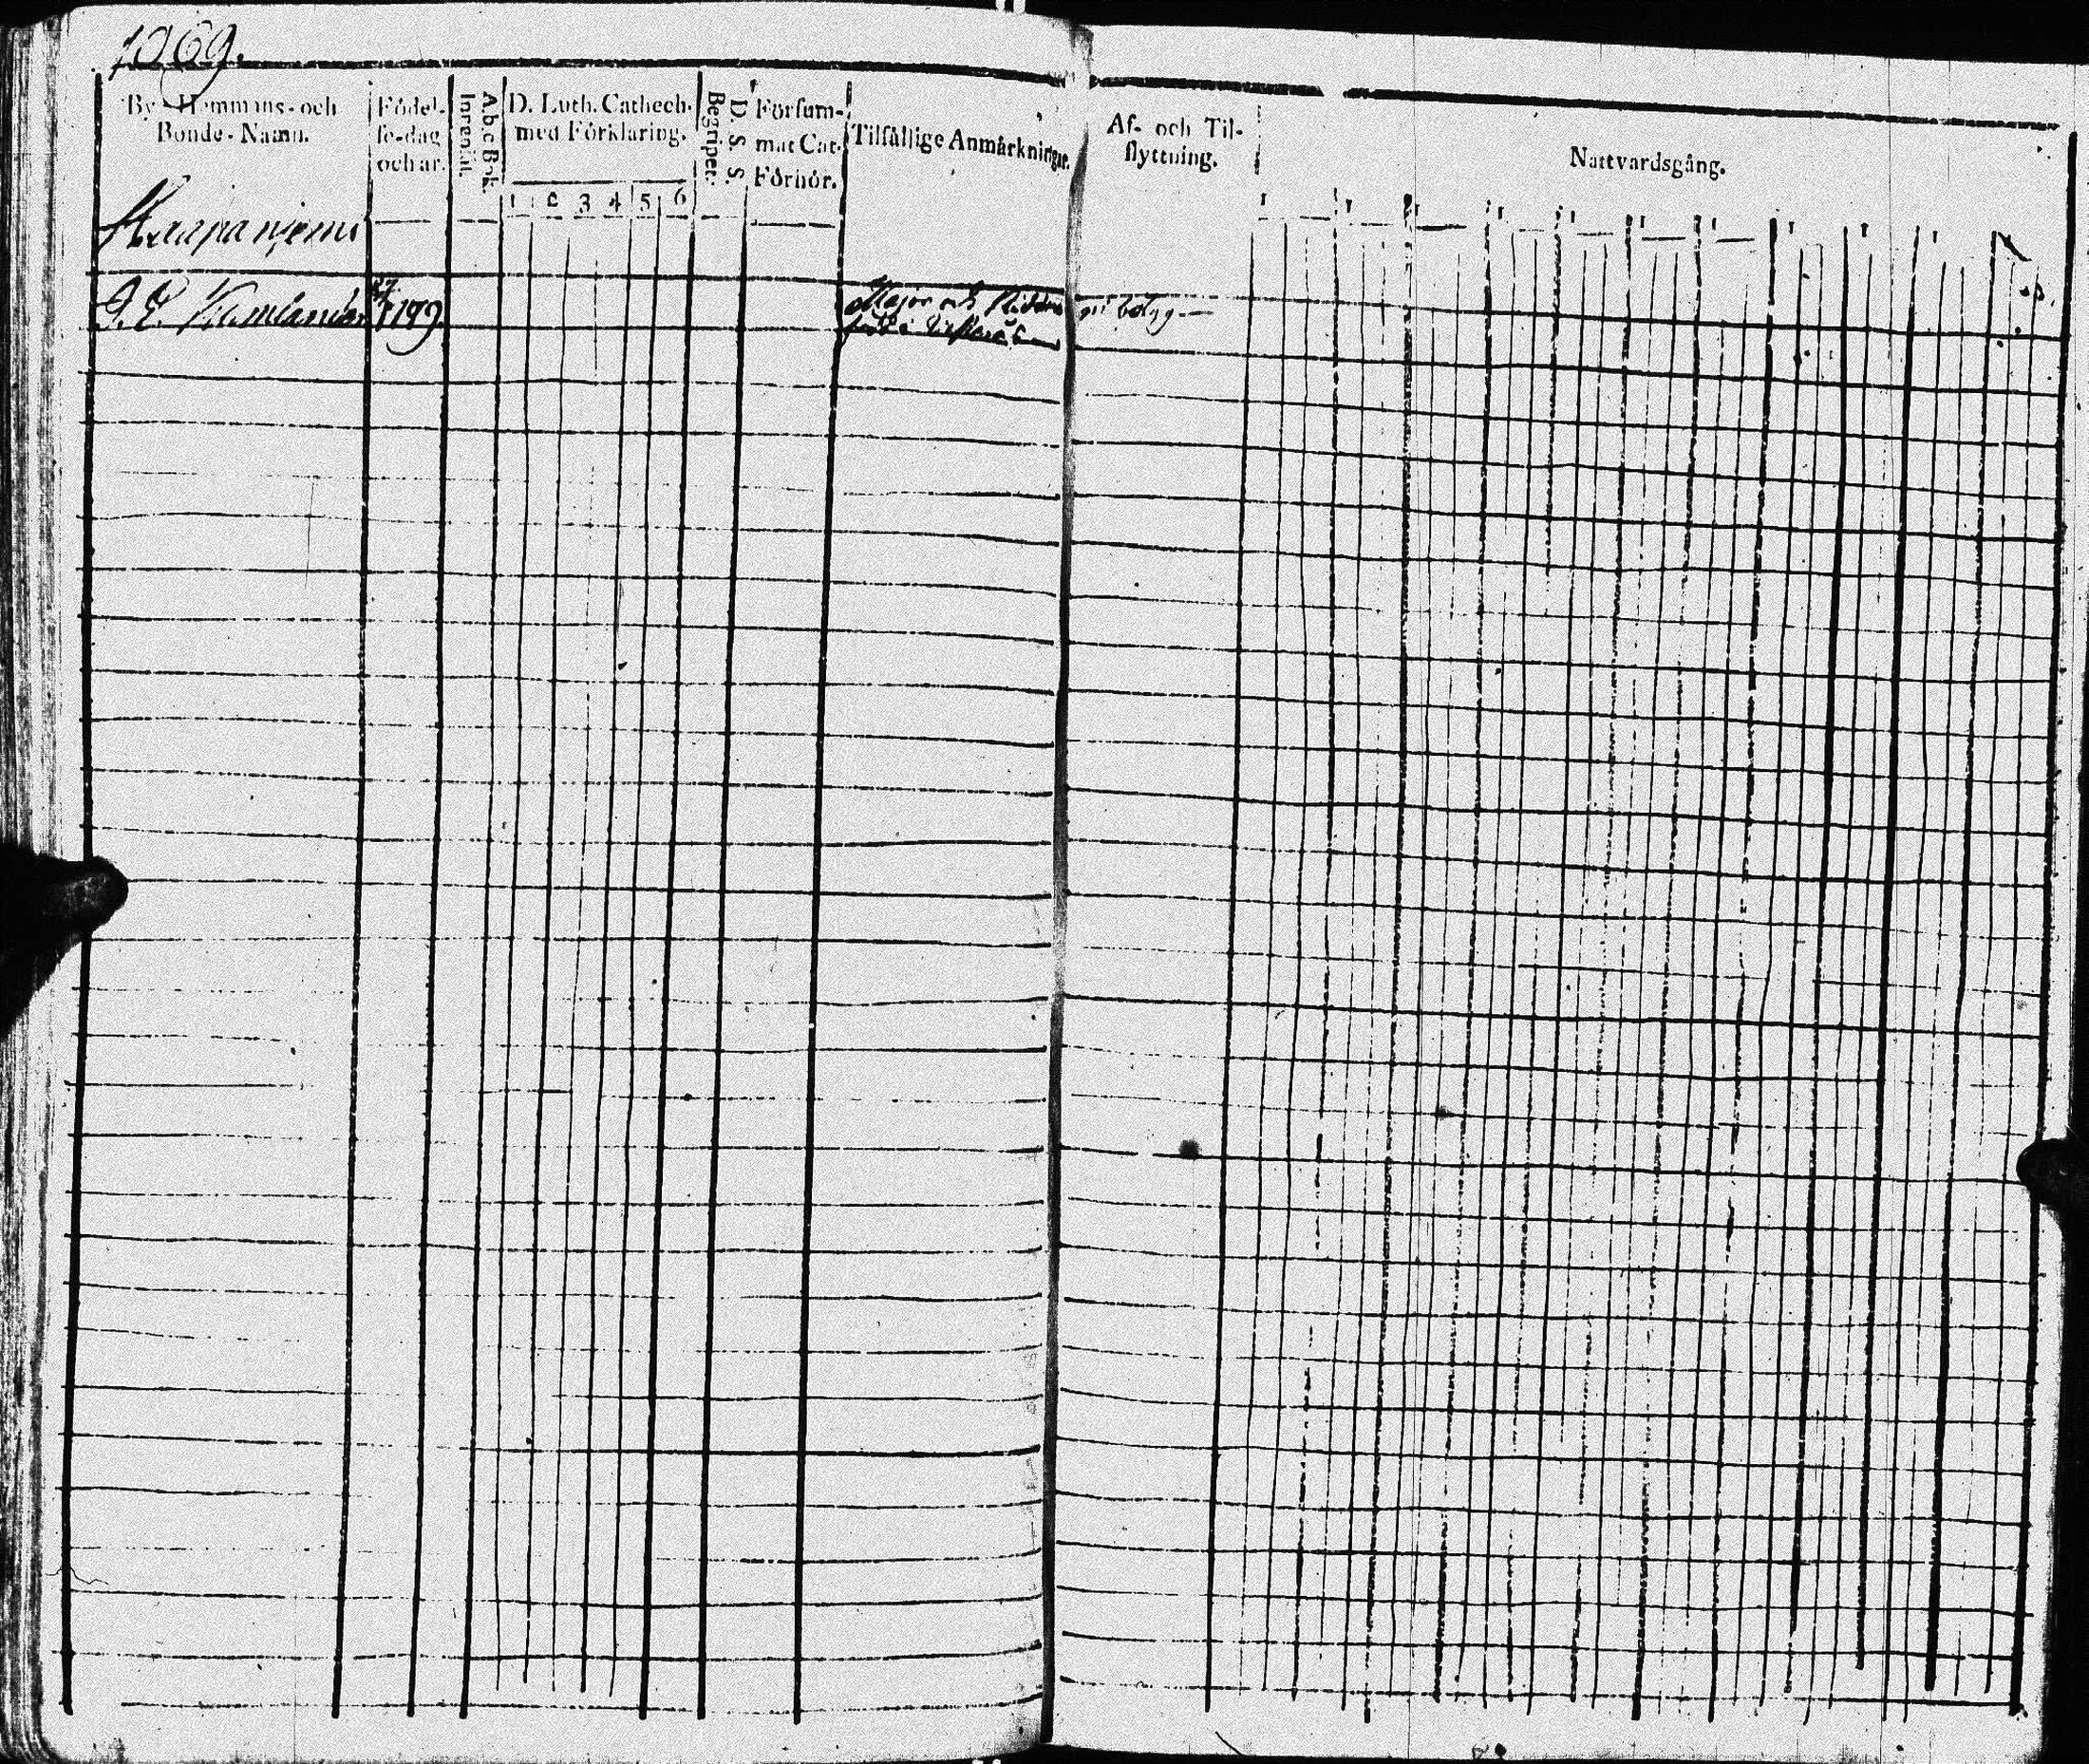 1069.
By- Hemmans- och
Bonde-Namn.
Födel-
se-dag
och ar.
Abc Bok.
Innenåt.
D. Luth. Cathech.
med Förklaring.
1 2 3 4 5 6
Begriper.
D. S. S.
Försum-
mat Cat.
Förhör.
Tilfällige Anmärkningar.
Af- och Til-
flyttning.
Nattvardsgång.
Haapaniemi
1799
Major och